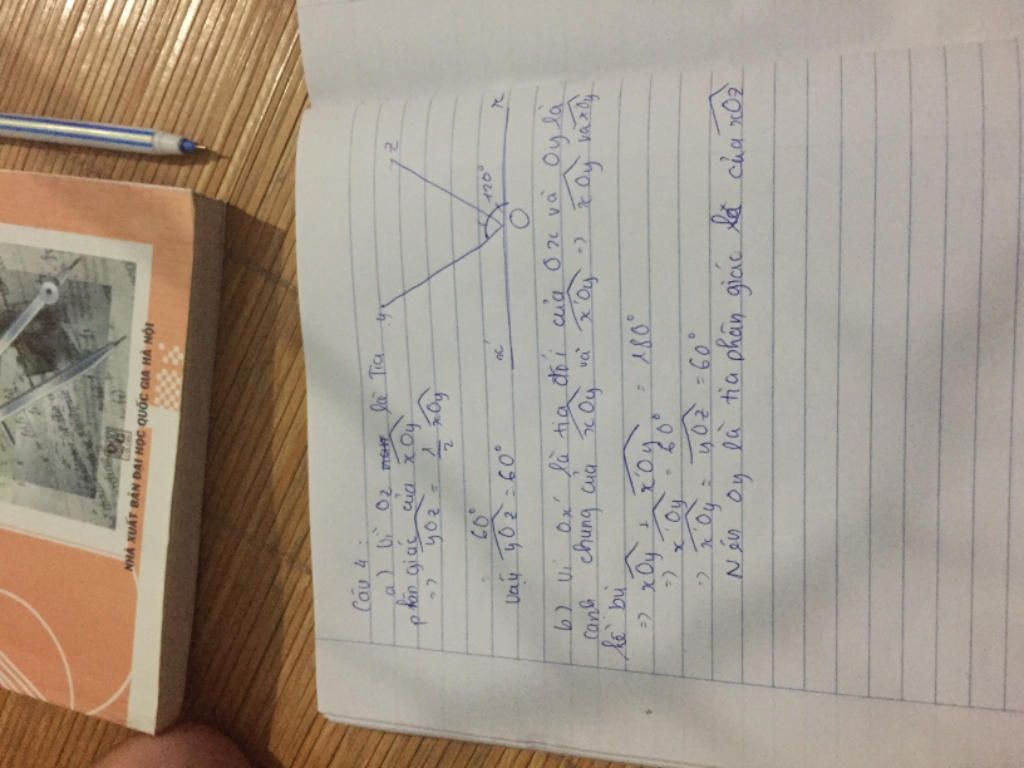 Câu 4:
a) Vì Oz là Tia
phân giác của xOy
=> yOz = 1/2 xOy
60°
Vậy yOz = 60°
y
z
120°
x'
O
x
b) Vì Ox' là tia đối của Ox và Oy là
cạnh chung của xOy và x'Oy => xOy và x'Oy
kề bù
=> xOy + x'Oy = 180°
=> x'Oy = 60°
=> x'Oy = yOz = 60°
Nên Oy là tia phân giác của x'Oz
NHÀ XUẤT BẢN ĐẠI HỌC QUỐC GIA HÀ NỘI